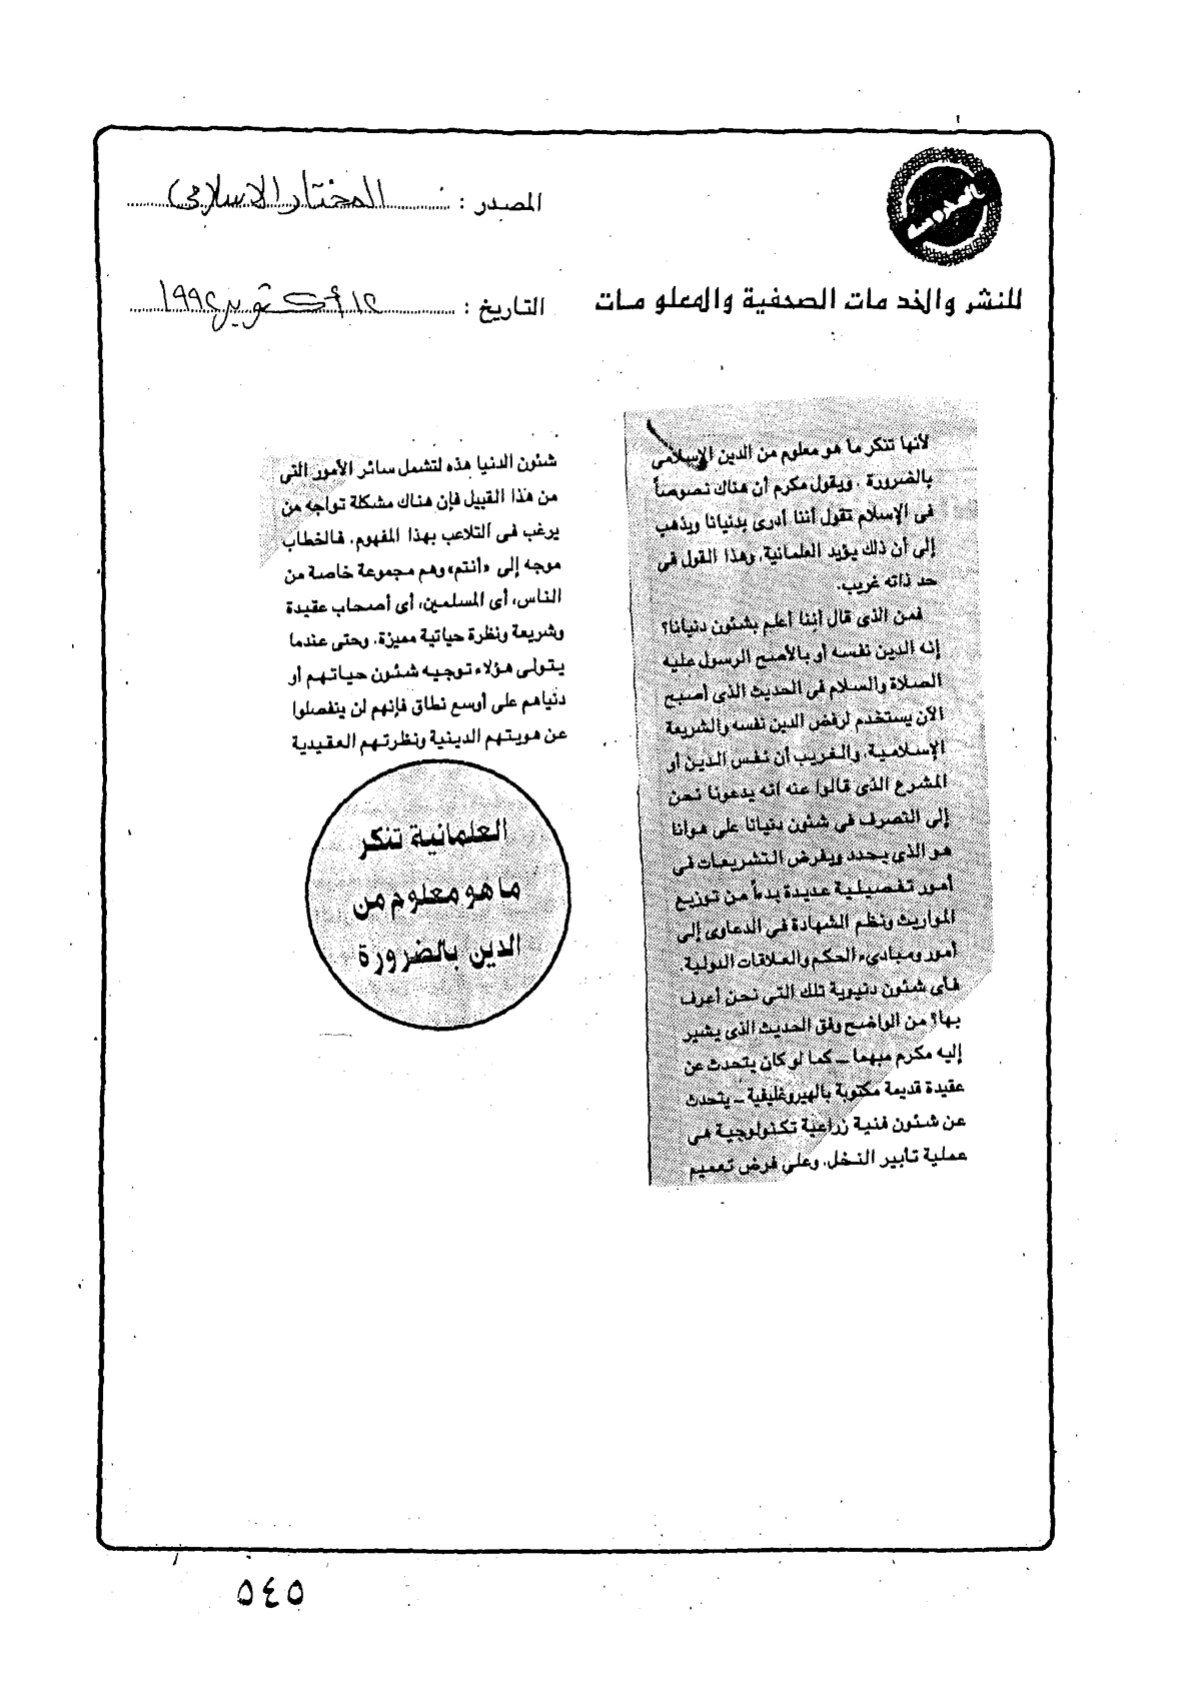 المصدر : المختار الاسلامى
للنشر والخدمات الصحفية والمعلومات
التاريخ : ١٢ أكتوبر ١٩٩٢
لأنها تنكر ما هو معلوم من الدين الإسلامى
بالضرورة . ويقول مكرم أن هناك نصوصاً
فى الإسلام تقول أننا أدرى بدنيانا ويذهب
إلى أن ذلك يؤيد العلمانية. وهذا القول فى
حد ذاته غريب.
فمن الذى قال أننا أعلم بشئون دنيانا؟
إنه الدين نفسه أو بالأصح الرسول عليه
الصلاة والسلام فى الحديث الذى أصبح
الآن يستخدم لرفض الدين نفسه والشريعة
الإسلامية. والغريب أن نفس الدين أو
المشرع الذى قالوا عنه انه يدعونا نحن
إلى التصرف فى شئون دنيانا على هوانا
هو الذى يحدد ويفرض التشريعات فى
أمور تفصيلية عديدة بدءاً من توزيع
المواريث ونظم الشهادة فى الدعاوى إلى
أمور ومبادىء الحكم والعلاقات الدولية.
فأى شئون دنيوية تلك التى نحن أعرف
بها؟ من الواضح وفق الحديث الذى يشير
إليه مكرم مبهما ــ كما لو كان يتحدث عن
عقيدة قديمة مكتوبة بالهيروغليفية ــ يتحدث
عن شئون فنية زراعية تكنولوجية هى
عملية تأبير النخل. وعلى فرض تعميم
شئون الدنيا هذه لتشمل سائر الأمور التى
من هذا القبيل فإن هناك مشكلة تواجه من
يرغب فى التلاعب بهذا المفهوم. فالخطاب
موجه إلى «أنتم» وهم مجموعة خاصة من
الناس، أى المسلمين، أى أصحاب عقيدة
وشريعة ونظرة حياتية مميزة. وحتى عندما
يتولى هؤلاء توجيه شئون حياتهم أو
دنياهم على أوسع نطاق فإنهم لن ينفصلوا
عن هويتهم الدينية ونظرتهم العقيدية
العلمانية تنكر
ما هو معلوم من
الدين بالضرورة
٥٤٥